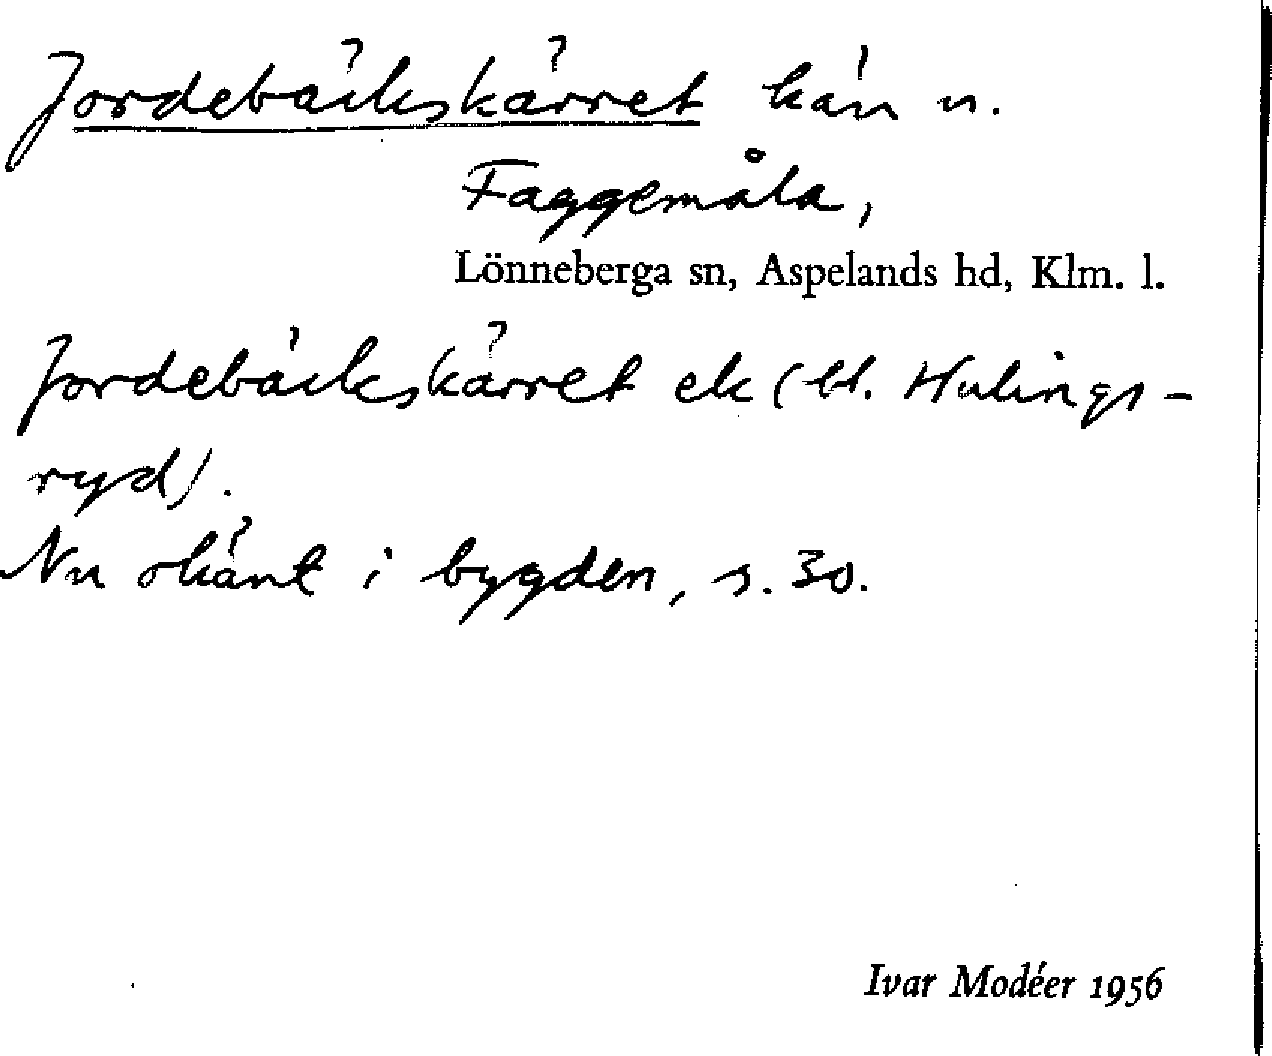 Jordebäckskärret hän n.
Faggemåla,
Lönneberga sn, Aspelands hd, Klm. l.
Jordebäckskärret ek (bl. Hulings-
ryd).
Nu okänt i bygden, s. 30.
Ivar Modéer 1956